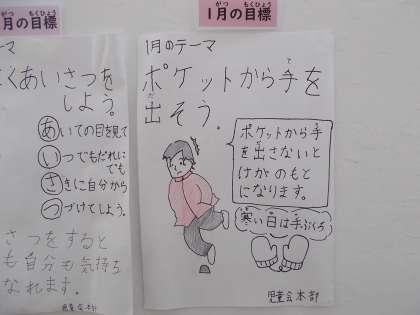 月の目標
がつ もくひょう
ーマ
くあいさつを
しよう。
あいての目を見て
いつでもだれに
でも
さきに自分から
つづけてしよう。
さつをすると
も自分も気持ち
なれます。
児童会本部
がつ もくひょう
1月の目標
1月のテーマ
ポケットから手を
て
出そう。
だ
ポケットから手
を出さないと
けがのもと
になります。
寒い日は手ぶくろ
児童会本部